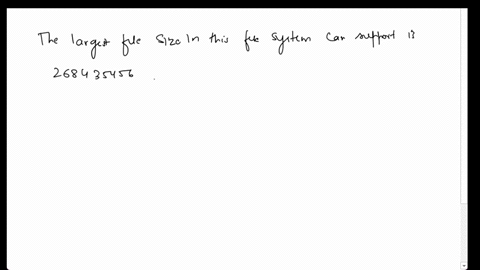 The largest file size in this file system can support is
268435456